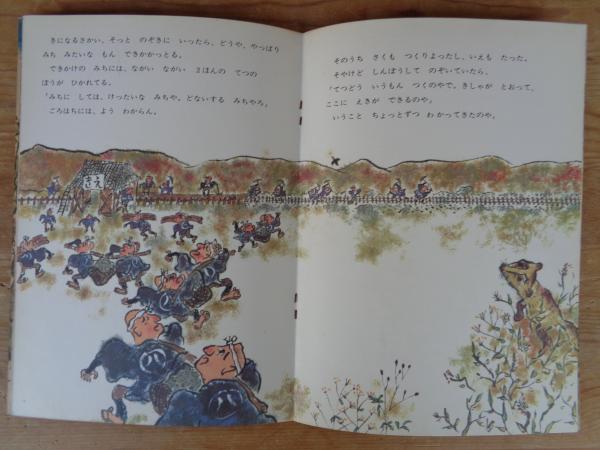 きになるさかい、そっと のぞきに いったら、どうや、やっぱり
みち みたいな もん できかかっとる。
できかけの みちには、ながい ながい 2ほんの てつの
ぼうが ひかれてる。
「みちに しては、けったいな みちや。どないする みちやろ」
ごろはちには、よう わからん。
そのうち さくも つくりよったし、いえも たった。
そやけど しんぼうして のぞいていたら、
「てつどう いうもん つくのやで。きしゃが とおって、
ここに えきが できるのや」
いうこと ちょっとずつ わかってきたのや。
きえ